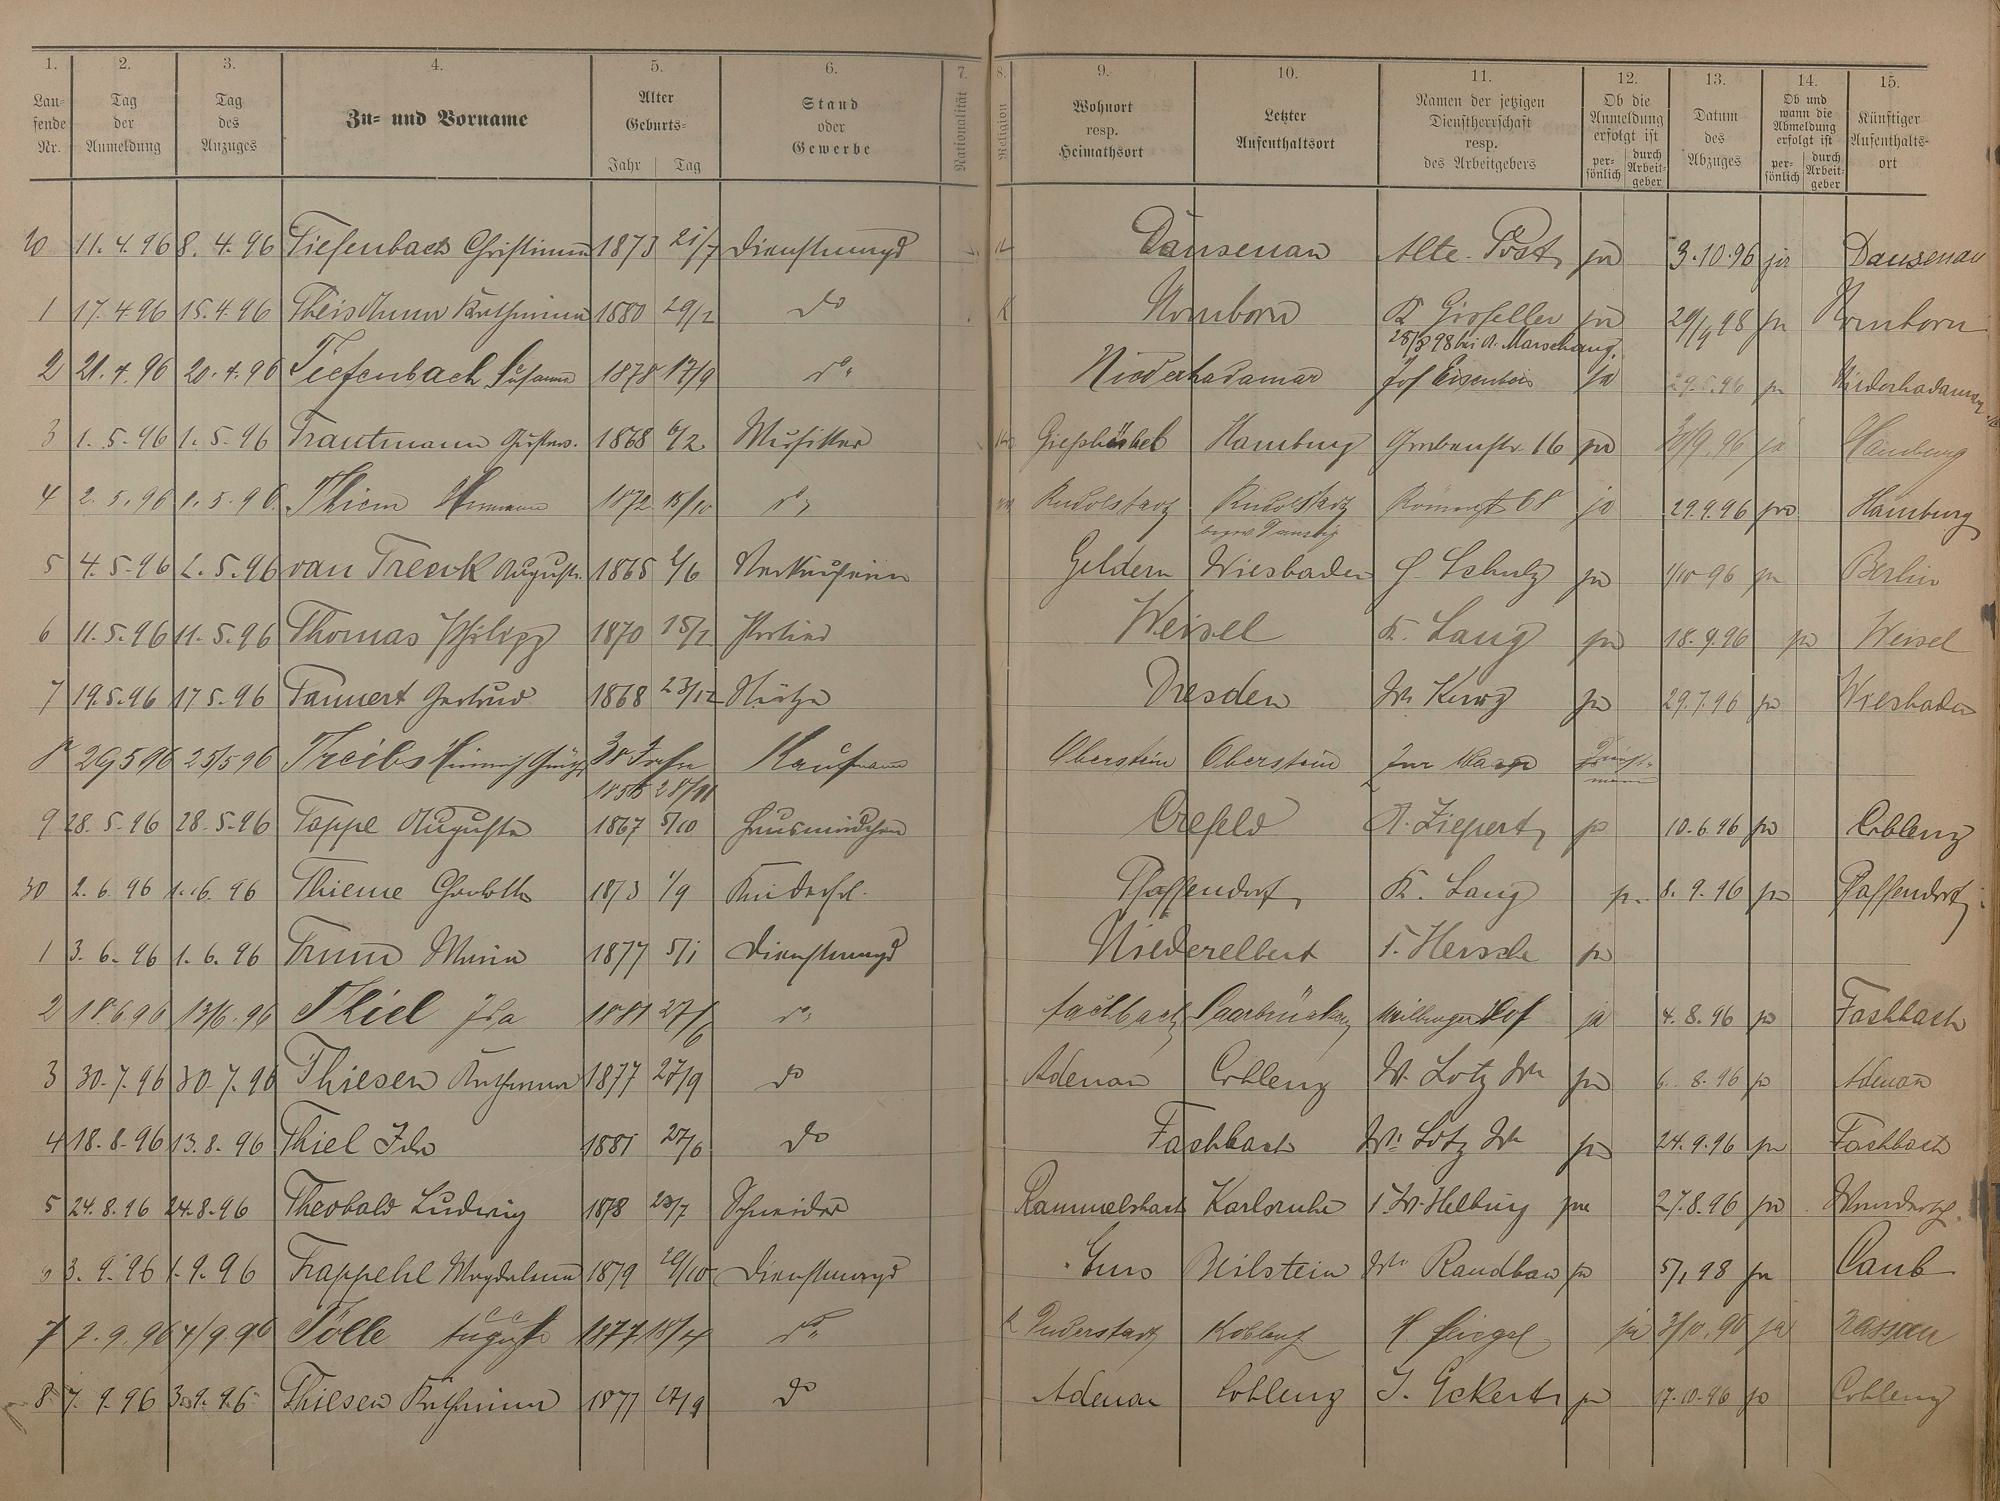 1. 2. 3. 4. 5. 6. 7. 8. 9. 10. 11. 12. 13. 14. 15.
Laufende Nr. Tag der Anmeldung Tag des Anzuges Zu- und Vorname Alter Geburts- Jahr Tag Stand oder Gewerbe Nationalität Religion Wohnort resp. Heimathsort Letzter Aufenthaltsort Namen der jetzigen Dienstherrschaft resp. des Arbeitgebers Ob die Anmeldung erfolgt ist persönlich durch Arbeitgeber Datum des Abzuges Ob und wann die Abmeldung erfolgt ist persönlich durch Arbeitgeber Künftiger Aufenthaltsort
20 11.4.96 8.4.96 Tiefenbach Christiane 1873 21/7 Dienstmagd Dausenau Alte Post ja 3.10.96 ja Dausenau
1 17.4.96 15.4.96 Theis Anna Katharina 1880 29/1 do K Nomborn ja 29/4 98 ja Nomborn
28/3 98 bei A. Marschang.
2 21.4.96 20.4.96 Tiefenbach Susanna 1878 17/9 do Niederhadamar Jos Eisenbeis ja 29.5.96 ja Niederhadamar
3 1.5.96 1.5.96 Trautmann 1868 6/2 Musiker Gießhübel Hamburg Grabenstr. 16 ja 30/9.96 ja Hamburg
4 2.5.96 1.5.96 Thiem Hermann 1872 15/10 do Rudolstadt Rudolstadt Römerst 68 ja 29.9.96 ja Hamburg
bezw. Danzig
5 4.5.96 2.5.96 van Treeck Auguste 1865 2/6 Verkäuferin Geldern Wiesbaden Schulz ja 1/10 96 ja Berlin
6 11.5.96 11.5.96 Thomas Philipp 1870 15/1 Portier Weisel K. Lang ja 18.9.96 ja Weisel
7 19.5.96 17.5.96 Tannert Gertrud 1868 23/12 Stütze Dresden ja 29.7.96 ja Wiesbaden
8 29 5 96 25/5 96 Treibs 38 Jahre Kaufmann Oberstein Oberstein zur
28/11
9 28.5.96 28.5.96 Tappe Auguste 1867 5/10 Hausmädchen Crefeld A. Ziepert ja 10.6.96 ja Coblenz
30 2.6.96 1.6.96 Thieme Charlotte 1873 1/9 Kinderfrl. Pfaffendorf K. Lang ja 8.9.96 ja Pfaffendorf
1 3.6.96 1.6.96 Trum Maria 1877 5/1 Dienstmagd Niederelbert ja
2 18.6 96 13/6.96 Thiel Ida 1881 27/6 do Fachbach Saarbrücken Hof ja 4.8.96 ja Fachbach
3 30.7.96 30.7.96 Thiesen Katharina 1877 27/9 do Adenau Coblenz W. Lotz Ww ja 6.8.96 ja Adenau
4 18.8.96 13.8.96 Thiel Ida 1881 27/6 do Fachbach W. Lotz Ww ja 24.9.96 ja Fachbach
5 24.8.96 24.8.96 Theobald Ludwig 1878 Schneider Rammelsbach Karlsruhe ja 27.8.96 ja
3.9.96 1.9.96 Trappehl Magdalena 1879 20/10 Dienstmagd Ems Beilstein ja 5/1 98 ja Caub
7 7.9.96 4/9 96 Tölle Auguste 1877 18/4 do K Duderstadt Koblenz ja 3/10.96 ja Nassau
8 7.9.96 Thiesen Katharina 1877 27/9 do Adenau Coblenz J. Eckert ja 17.10.96 ja Coblenz